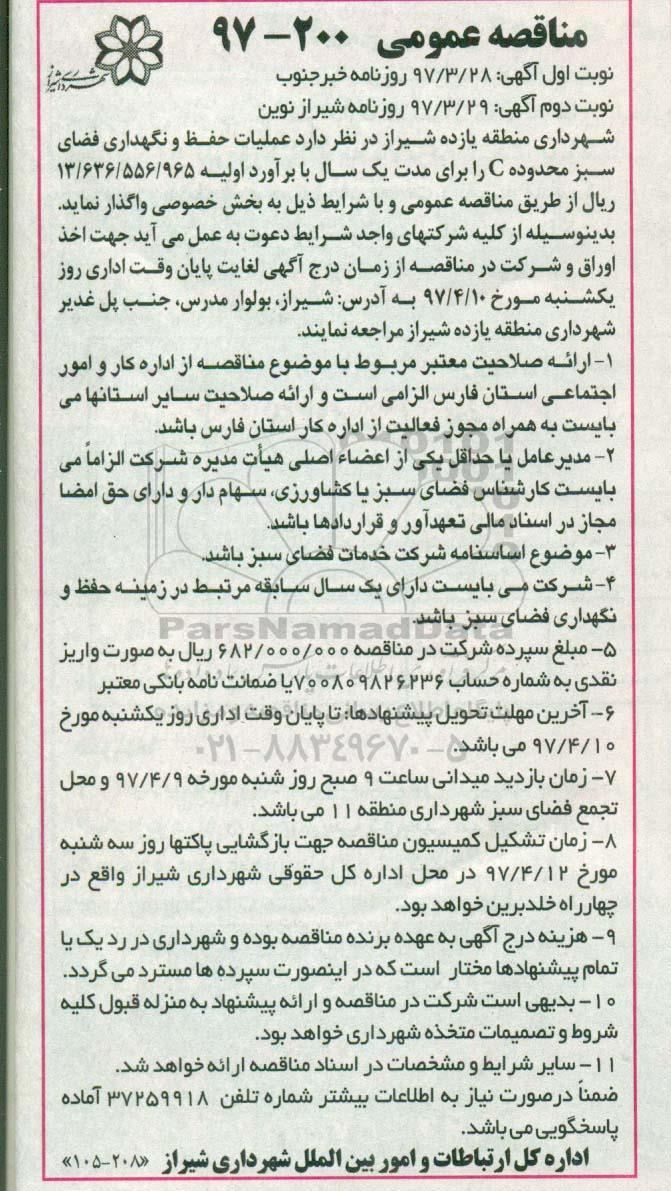 مناقصه عمومی ۲۰۰-۹۷
شهرداری شیراز
نوبت اول آگهی: ۹۷/۳/۲۸ روزنامه خبرجنوب
نوبت دوم آگهی: ۹۷/۳/۲۹ روزنامه شیراز نوین
شهرداری منطقه یازده شیراز در نظر دارد عملیات حفظ و نگهداری فضای
سبز محدوده C را برای مدت یک سال با برآورد اولیه ۱۳/۶۳۶/۵۵۶/۹۶۵
ریال از طریق مناقصه عمومی و با شرایط ذیل به بخش خصوصی واگذار نماید.
بدینوسیله از کلیه شرکتهای واجد شرایط دعوت به عمل می آید جهت اخذ
اوراق و شرکت در مناقصه از زمان درج آگهی لغایت پایان وقت اداری روز
یکشنبه مورخ ۹۷/۴/۱۰ به آدرس: شیراز، بولوار مدرس، جنب پل غدیر
شهرداری منطقه یازده شیراز مراجعه نمایند.
۱- ارائه صلاحیت معتبر مربوط با موضوع مناقصه از اداره کار و امور
اجتماعی استان فارس الزامی است و ارائه صلاحیت سایر استانها می
بایست به همراه مجوز فعالیت از اداره کار استان فارس باشد.
۲- مدیرعامل یا حداقل یکی از اعضاء اصلی هیأت مدیره شرکت الزاماً می
بایست کارشناس فضای سبز یا کشاورزی، سهام دار و دارای حق امضا
مجاز در اسناد مالی تعهدآور و قراردادها باشد.
۳- موضوع اساسنامه شرکت خدمات فضای سبز باشد.
۴- شرکت می بایست دارای یک سال سابقه مرتبط در زمینه حفظ و
نگهداری فضای سبز باشد.
ParsNamadData
۵- مبلغ سپرده شرکت در مناقصه ۶۸۲/۰۰۰/۰۰۰ ریال به صورت واریز
نقدی به شماره حساب ۷۰۰۸۰۹۸۲۶۲۳۶ یا ضمانت نامه بانکی معتبر
۶- آخرین مهلت تحویل پیشنهادها: تا پایان وقت اداری روز یکشنبه مورخ
۹۷/۴/۱۰ می باشد.
۰۲۱-۸۸۳۴۹۶۷۰-۵
۷- زمان بازدید میدانی ساعت ۹ صبح روز شنبه مورخه ۹۷/۴/۹ و محل
تجمع فضای سبز شهرداری منطقه ۱۱ می باشد.
۸- زمان تشکیل کمیسیون مناقصه جهت بازگشایی پاکتها روز سه شنبه
مورخ ۹۷/۴/۱۲ در محل اداره کل حقوقی شهرداری شیراز واقع در
چهارراه خلدبرین خواهد بود.
۹- هزینه درج آگهی به عهده برنده مناقصه بوده و شهرداری در رد یک یا
تمام پیشنهادها مختار است که در اینصورت سپرده ها مسترد می گردد.
۱۰- بدیهی است شرکت در مناقصه و ارائه پیشنهاد به منزله قبول کلیه
شروط و تصمیمات متخذه شهرداری خواهد بود.
۱۱- سایر شرایط و مشخصات در اسناد مناقصه ارائه خواهد شد.
ضمناً درصورت نیاز به اطلاعات بیشتر شماره تلفن ۳۷۲۵۹۹۱۸ آماده
پاسخگویی می باشد.
اداره کل ارتباطات و امور بین الملل شهرداری شیراز «۱۰۵-۲۰۸»